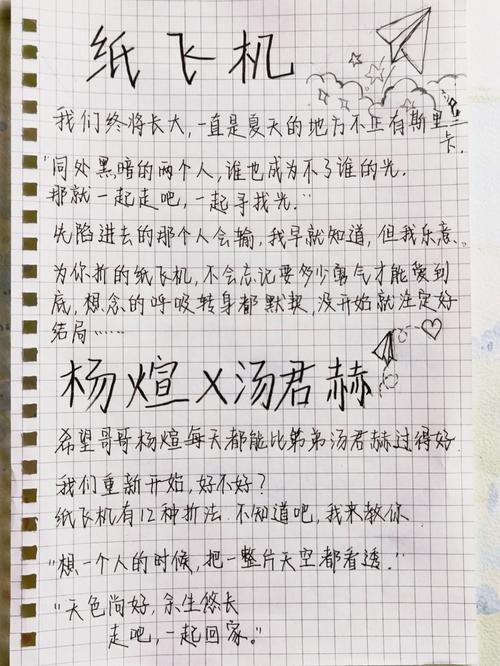 纸飞机
我们终将长大,一直是夏天的地方不止有斯里兰
卡.
"同处黑暗的两个人,谁也成为不了谁的光.
那就一起走吧,一起寻找光."
先陷进去的那个人会输,我早就知道,但我乐意.
为你折的纸飞机,不会忘记要多少勇气才能爱到
底,想念的呼吸转身都默契,没开始就注定好
结局……
杨煊X汤君赫
希望哥哥杨煊每天都能比弟弟汤君赫过得好.
我们重新开始,好不好?
纸飞机有12种折法.不知道吧,我来教你.
"想一个人的时候,把一整片天空都看透."
"天色尚好,余生悠长
走吧,一起回家。"